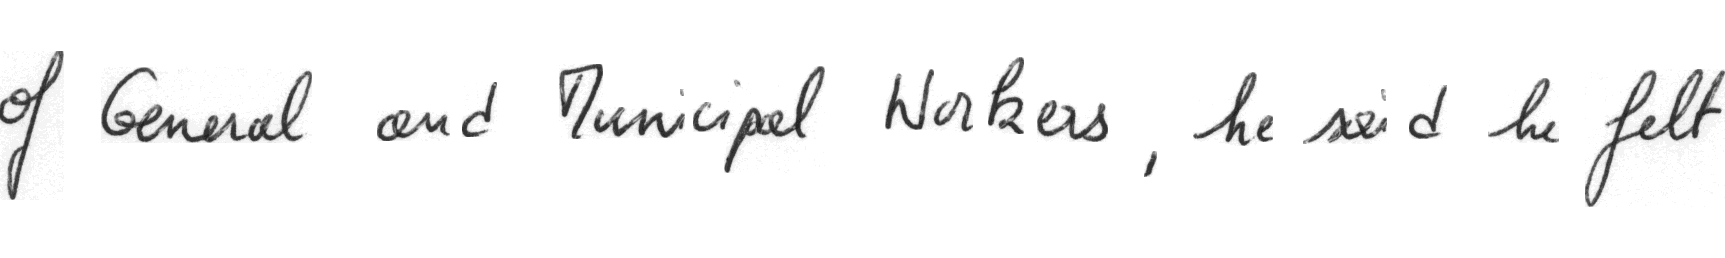 of General and Municipal Workers, he said he felt